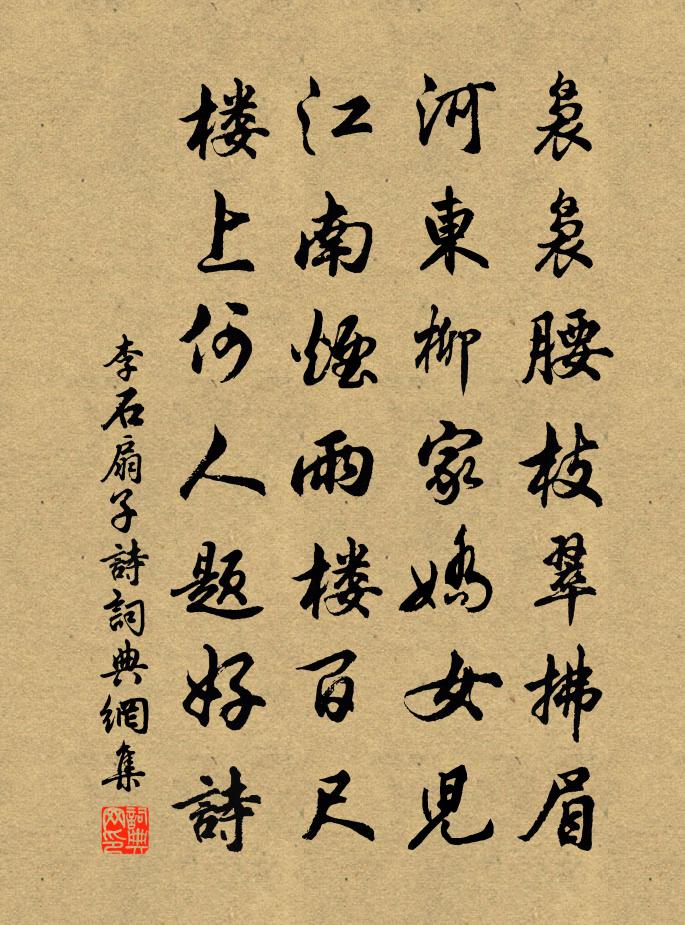 裊裊腰枝翠拂眉
河東柳家嬌女児
江南煙雨楼百尺
楼上何人题好詩
李石扇子詩詞典網集
詞典网印